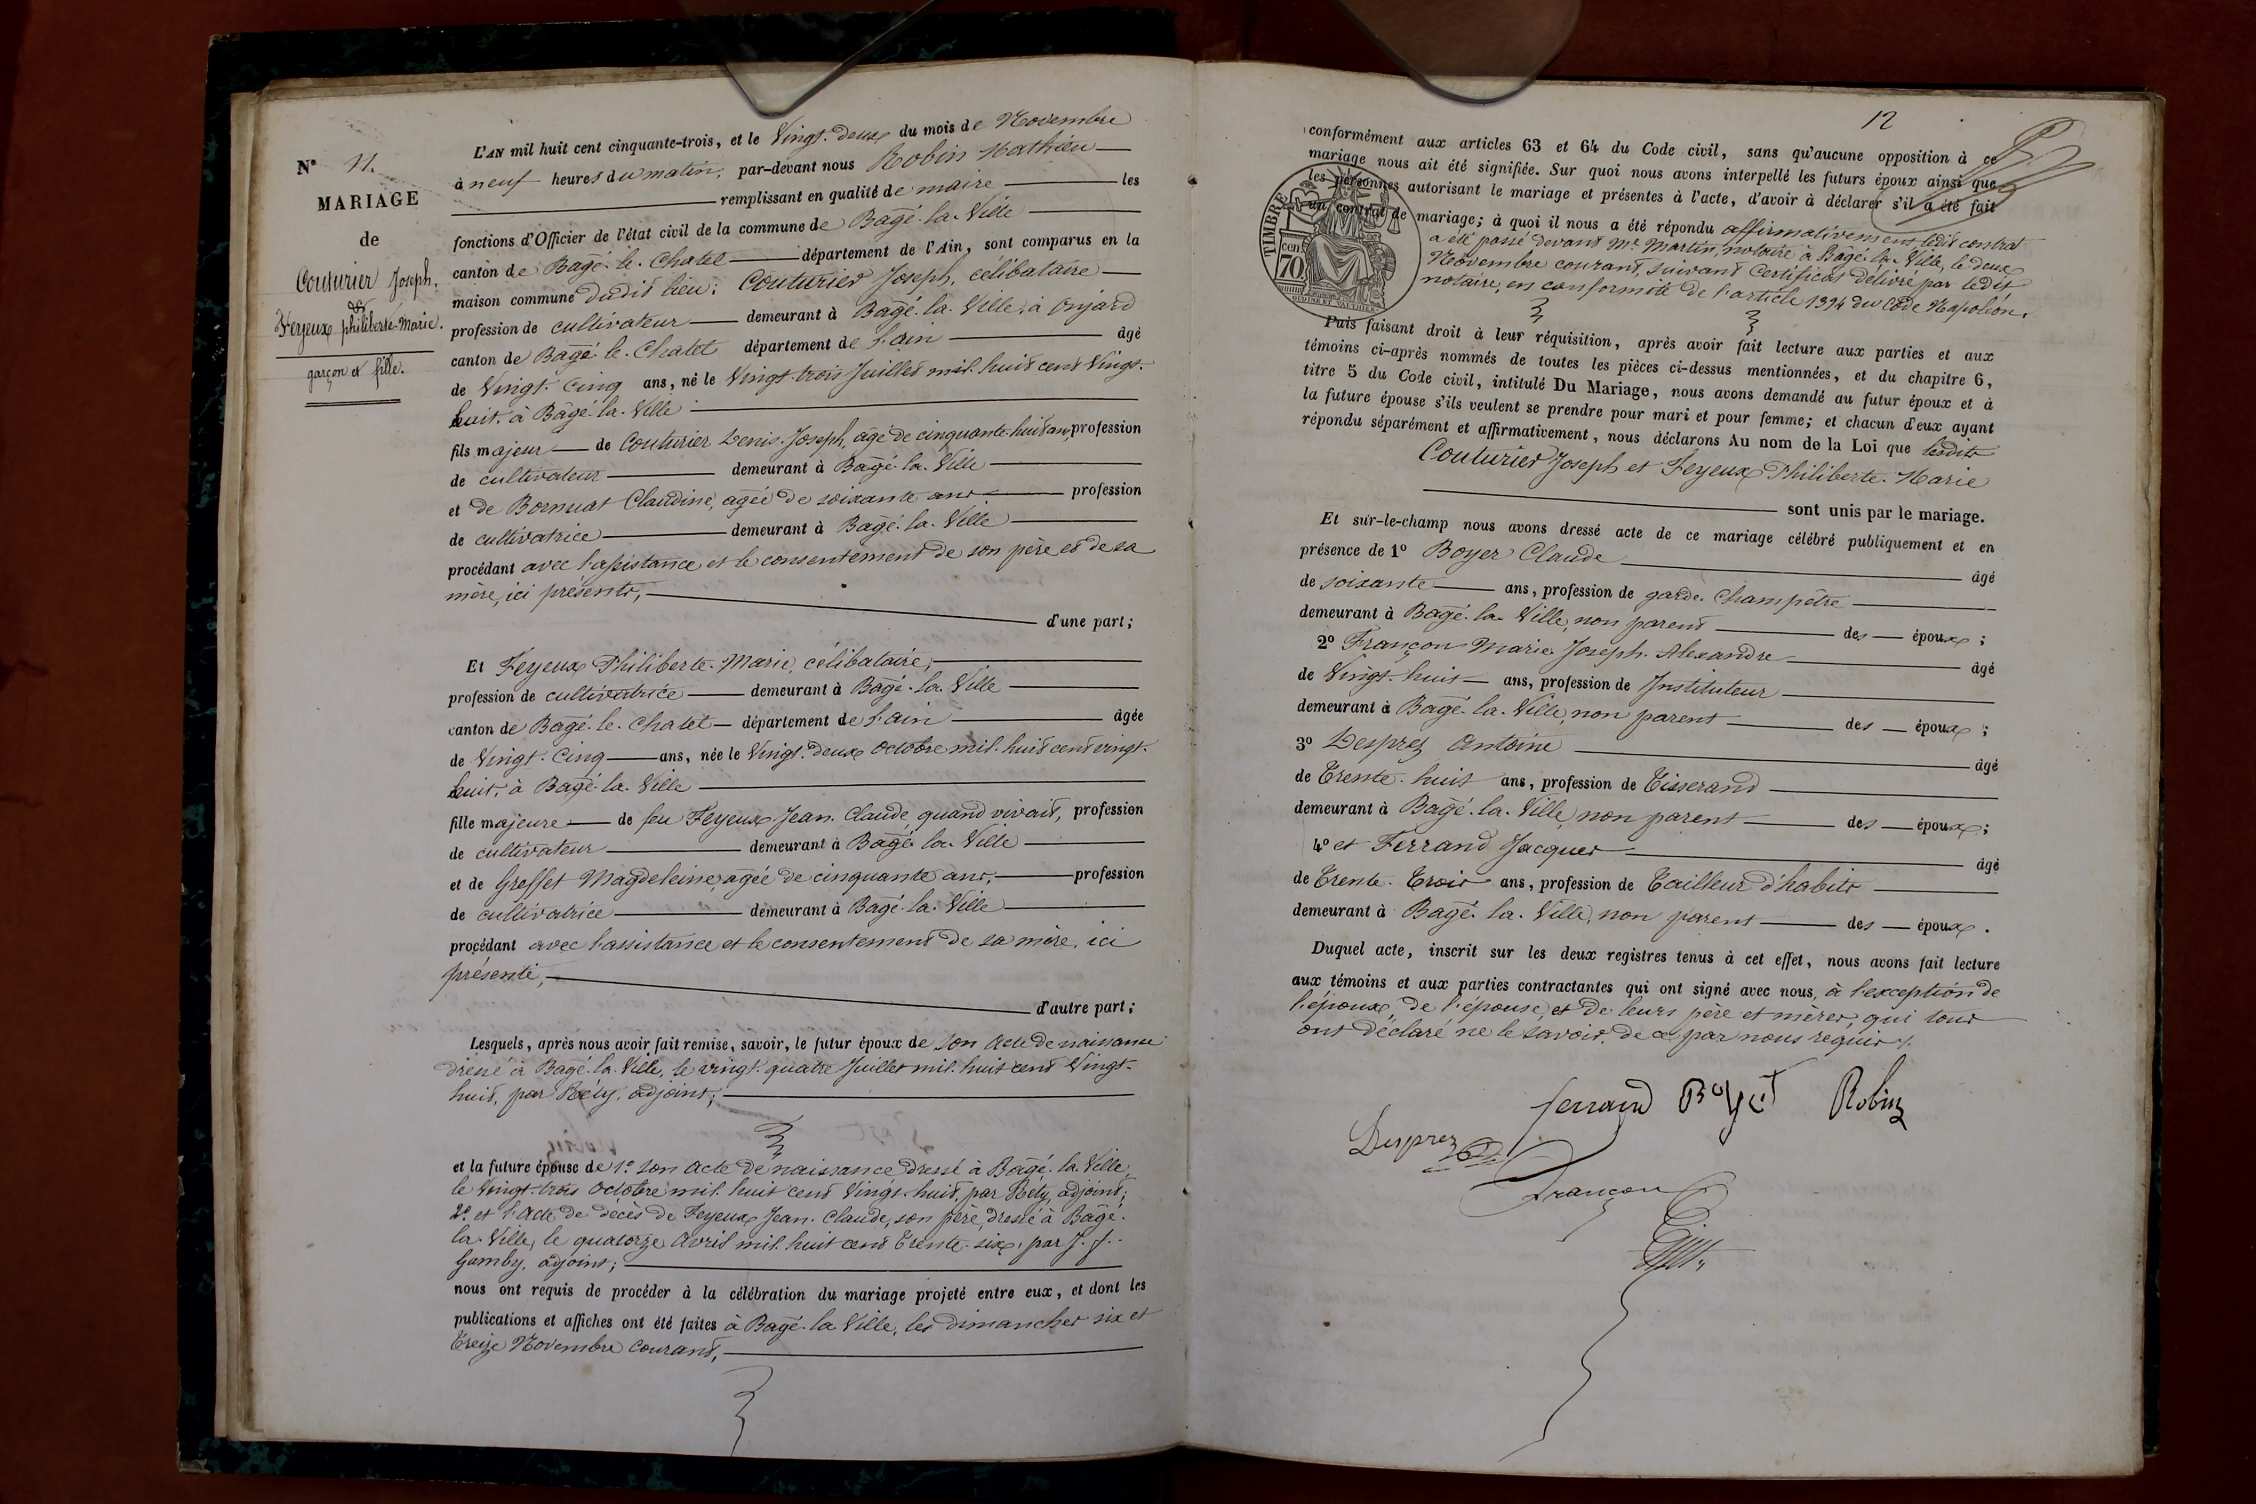 N° 11.
MARIAGE
de
Couturier Joseph.
&
Feyeux philiberte-Marie.
garçon et fille.
L'AN mil huit cent cinquante-trois, et le Vingt-deux du mois de Novembre
à neuf heures du matin, par-devant nous Robin Mathieu
remplissant en qualité de maire les
fonctions d'Officier de l'état civil de la commune de Bagé-la-Ville
canton de Bagé-le-Chatel département de l'Ain, sont comparus en la
maison commune dudit lieu : Couturier Joseph, célibataire
profession de cultivateur demeurant à Bagé-la-Ville, à Onjard
canton de Bagé-le-Chatel département de l'ain âgé
de Vingt-cinq ans, né le Vingt-trois Juillet mil-huit cent Vingt-
huit, à Bâgé-la-Ville
fils majeur de Couturier Denis-Joseph, âgé de cinquante-huit ans, profession
de cultivateur demeurant à Bagé-la-Ville
et de Bornuat Claudine, agée de soixante ans. profession
de cultivatrice demeurant à Bagé-la-Ville
procédant avec l'assistance et le consentement de son père et de sa
mère, ici présents,
d'une part ;
Et Feyeux Philiberte-Marie, célibataire,
profession de cultivatrice demeurant à Bagé-la-Ville
canton de Bagé-le-Chatel département de l'ain âgée
de Vingt-Cinq ans, née le Vingt-deux Octobre mil-huit cent vingt-
huit, à Bagé-la-Ville
fille majeure de feu Feyeux Jean-Claude, quand vivait, profession
de cultivateur demeurant à Bagé-la-Ville
et de Greffet Magdeleine, agée de cinquante ans, profession
de cultivatrice demeurant à Bagé-la-Ville
procédant avec l'assistance et le consentement de sa mère, ici
présente,
d'autre part ;
Lesquels, après nous avoir fait remise, savoir, le futur époux de son acte de naissance
dressé à Bagé-la-Ville, le vingt-quatre Juillet mil-huit cent Vingt-
huit, par Réty, adjoint ;
et la future épouse de 1° son acte de naissance dressé à Bâgé-la-Ville,
le Vingt-trois Octobre mil-huit cent Vingt-huit, par Réty, adjoint ;
2° et l'acte de décès de Feyeux Jean-Claude, son père, dressé à Bâgé-
la-Ville, le quatorze Avril mil-huit cent Trente-six, par J. J.
Gamby, adjoint ;
nous ont requis de procéder à la célébration du mariage projeté entre eux, et dont les
publications et affiches ont été faites à Bagé-la-Ville, les dimanches six et
Treize Novembre courant,
12
conformément aux articles 63 et 64 du Code civil, sans qu'aucune opposition à ce
mariage nous ait été signifiée. Sur quoi nous avons interpellé les futurs époux ainsi que
les personnes autorisant le mariage et présentes à l'acte, d'avoir à déclarer s'il a été fait
un contrat de mariage ; à quoi il nous a été répondu affirmativement ledit contrat
a été passé devant Me Martin, notaire à Bagé-la-Ville, le deux
Novembre courant, suivant certificat délivré par ledit
notaire, en conformité de l'article 1394 du Code Napoléon.
TIMBRE
cen
70
Puis faisant droit à leur réquisition, après avoir fait lecture aux parties et aux
témoins ci-après nommés de toutes les pièces ci-dessus mentionnées, et du chapitre 6,
titre 5 du Code civil, intitulé Du Mariage, nous avons demandé au futur époux et à
la future épouse s'ils veulent se prendre pour mari et pour femme ; et chacun d'eux ayant
répondu séparément et affirmativement, nous déclarons Au nom de la Loi que lesdits
Couturier Joseph et Feyeux Philiberte-Marie
sont unis par le mariage.
Et sur-le-champ nous avons dressé acte de ce mariage célébré publiquement et en
présence de 1° Boyer Claude âgé
de soixante ans, profession de garde-champêtre
demeurant à Bagé-la-Ville, non parent des époux ;
2° Françon Marie-Joseph-Alexandre âgé
de Vingt-huit ans, profession de Instituteur
demeurant à Bagé-la-Ville, non parent des époux ;
3° Desprez Antoine âgé
de Trente-huit ans, profession de Tisserand
demeurant à Bagé-la-Ville, non parent des époux ;
4° et Ferrand Jacques âgé
de Trente-Trois ans, profession de Tailleur d'habits
demeurant à Bagé-la-Ville, non parent des époux.
Duquel acte, inscrit sur les deux registres tenus à cet effet, nous avons fait lecture
aux témoins et aux parties contractantes qui ont signé avec nous, à l'exception de
l'époux, de l'épouse, et de leurs père et mères, qui tous
ont déclaré ne le savoir, de ce par nous requis.
ferrand Boyer Robin
Desprez
Françon